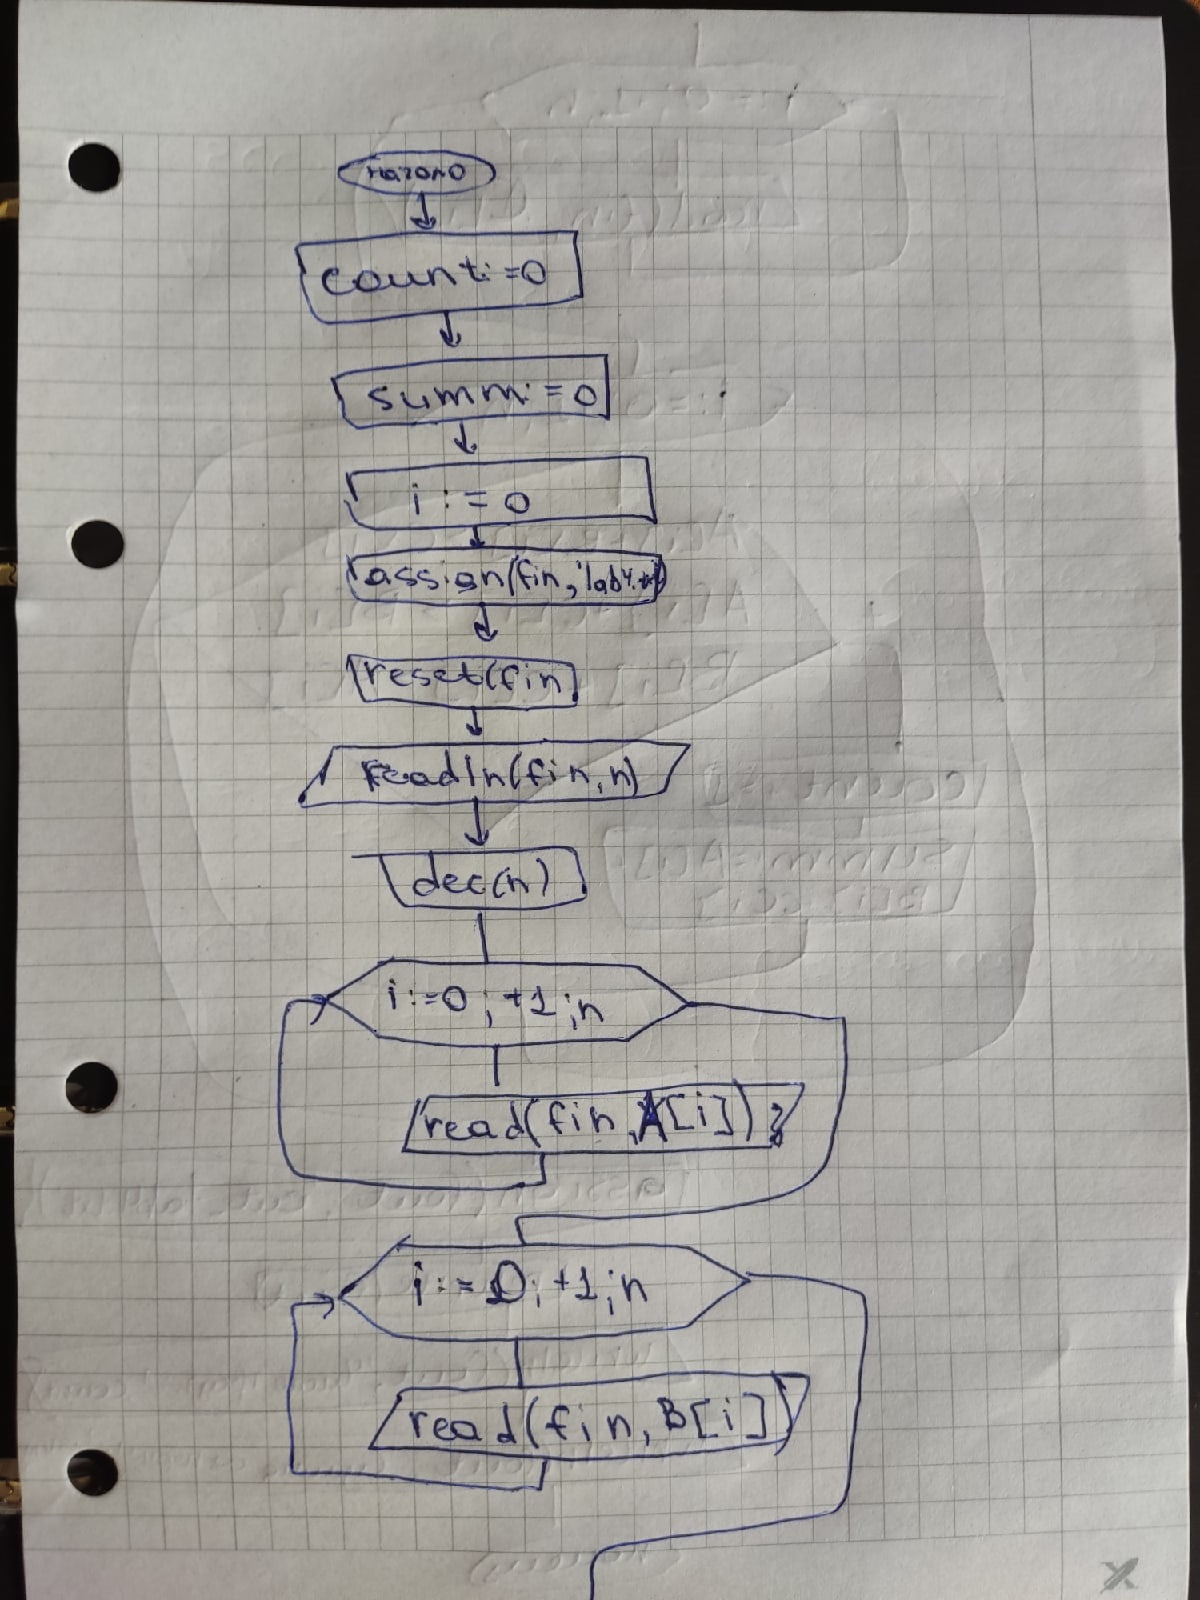 начало
count:=0
summ:=0
i:=0
assign(fin,'lab4.
reset(fin
readln(fin,n)
dec(n)
i:=0; +1;n
read(fin,A[i])
i:=0; +1;n
read(fin,B[i]